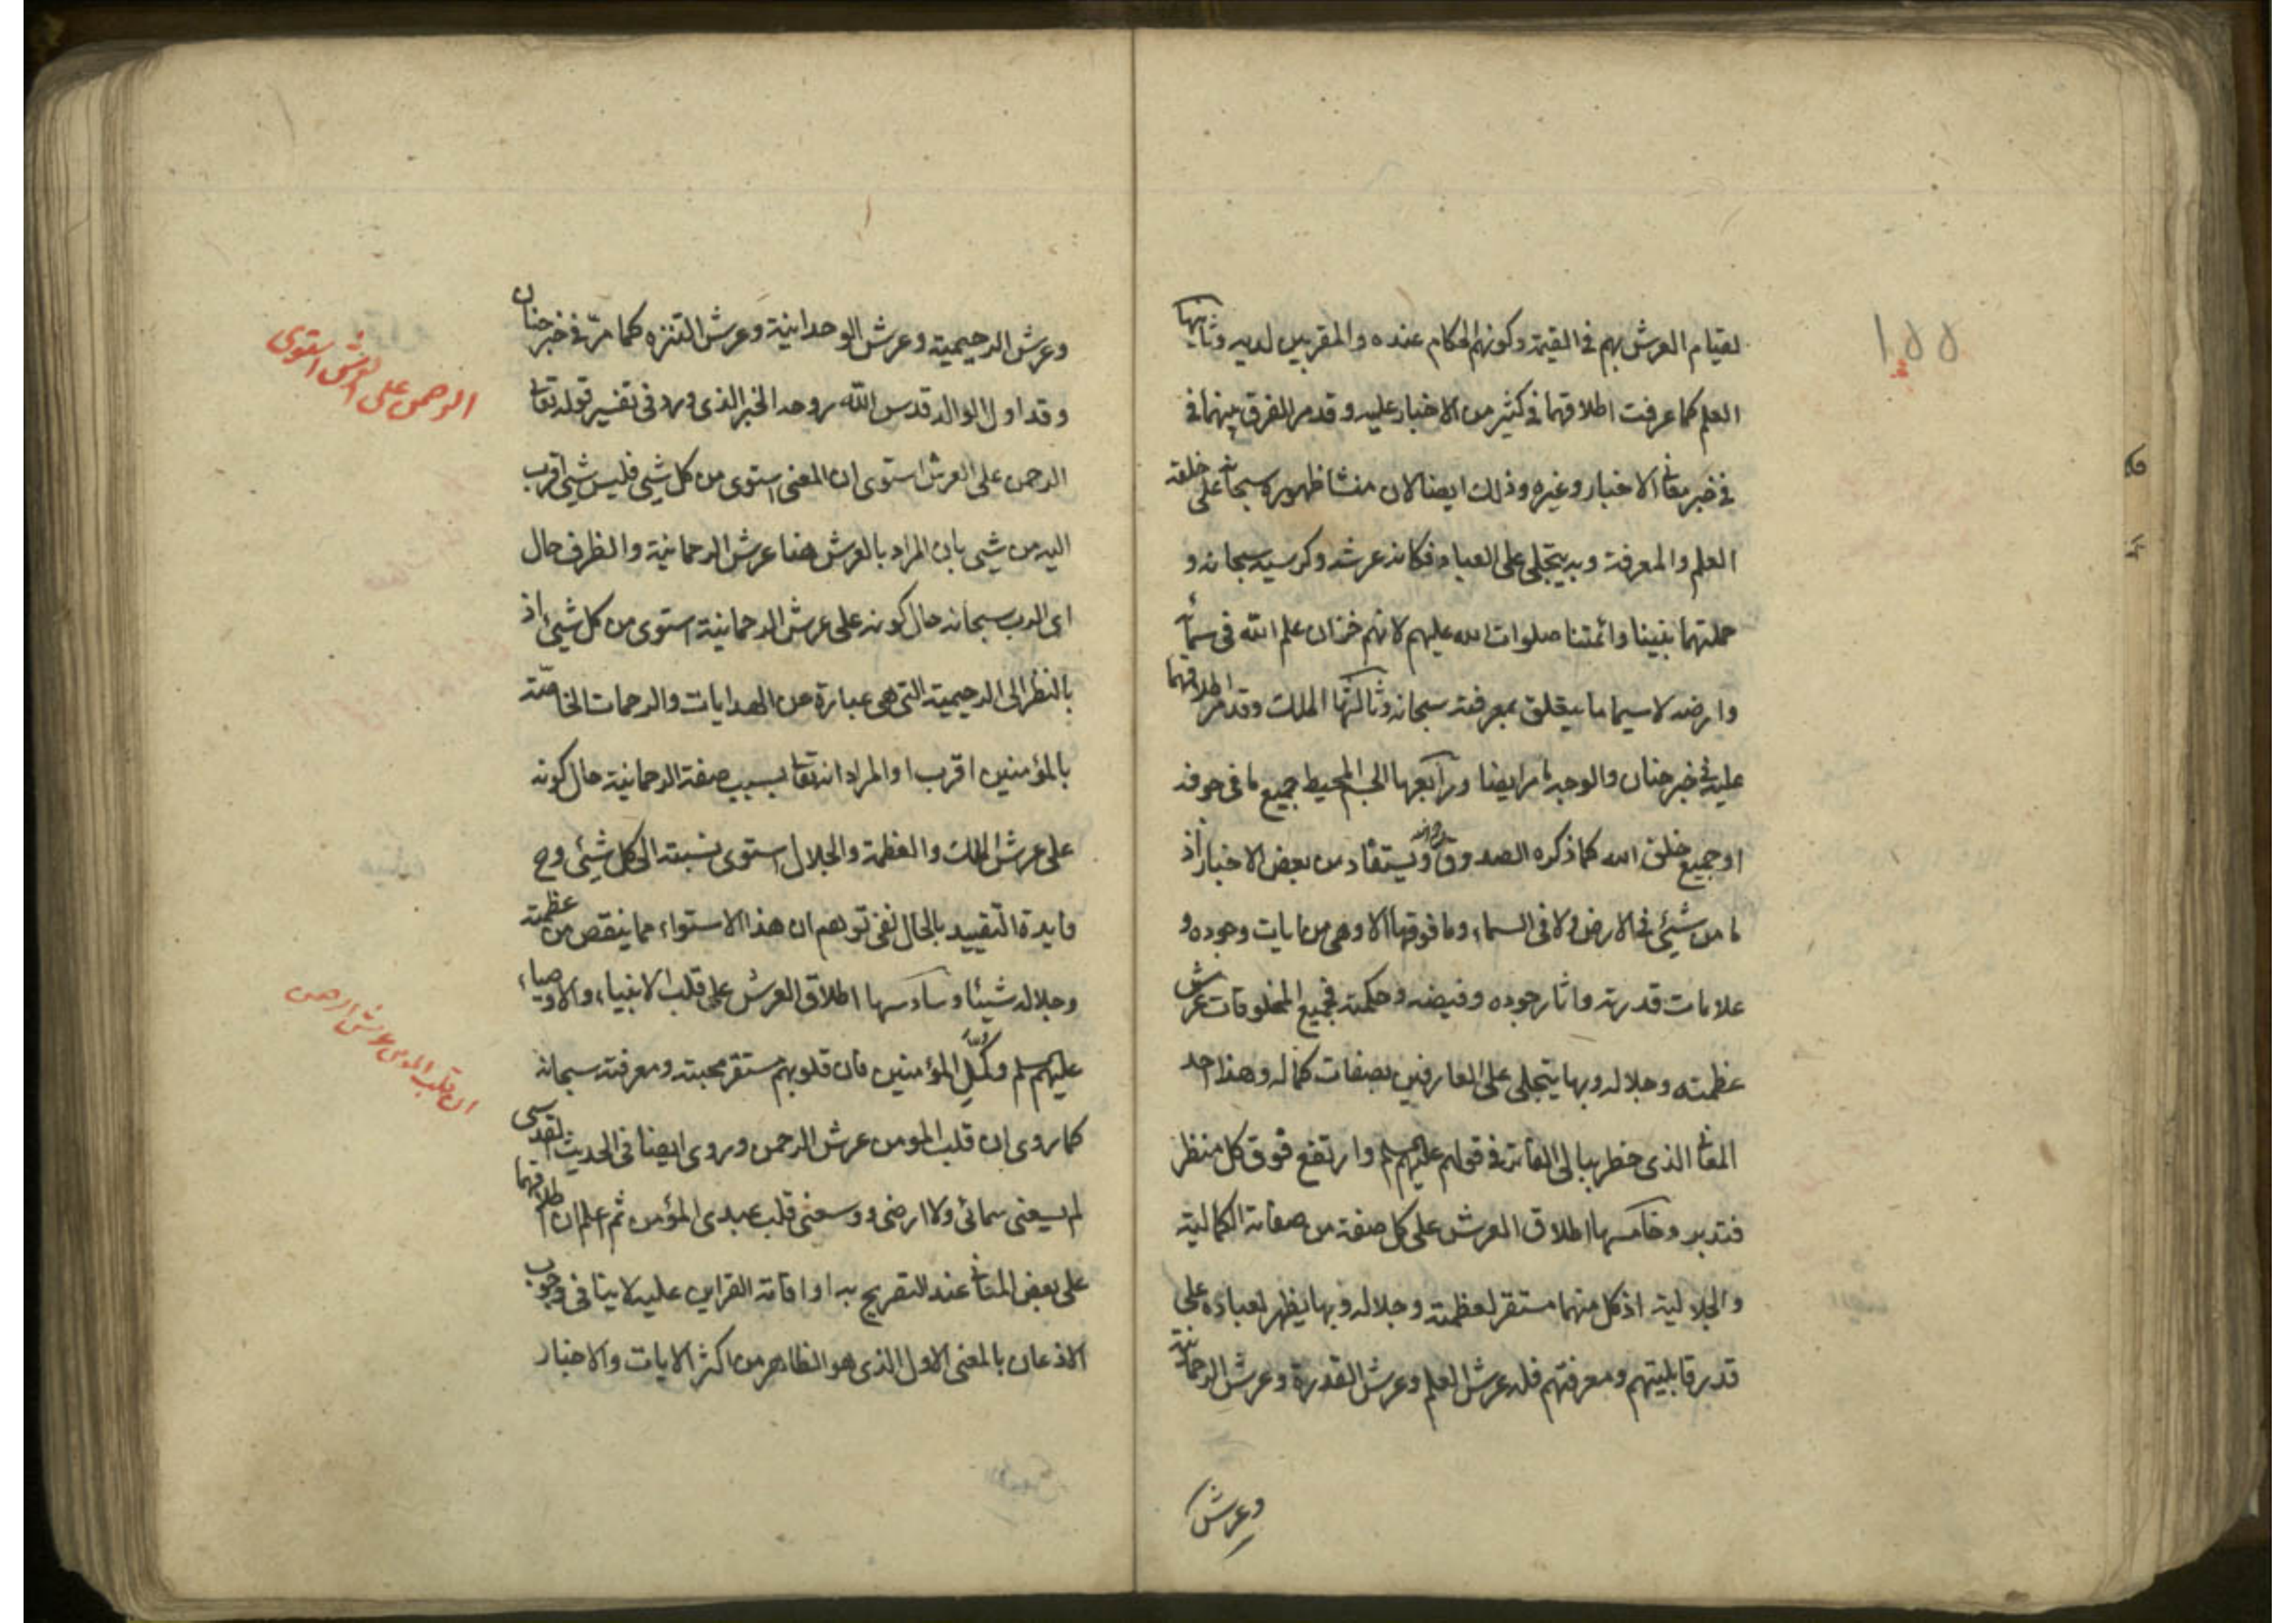 ١٥٥
لقيام العرش بهم في القيمة وكونهم الحكام عنده والمقربين لديه وثانيها
العلم كما عرفت اطلاقهما في كثير من الاخبار عليه وقد مر الفرق بينهما في
في خبر معاني الاخبار وغيره وذلك ايضا لان منشا ظهوره سبحانه على خلقه
العلم والمعرفة وبه يتجلى على العباد فكانه عرشه وكرسيه سبحانه و
حملتهما نبينا وائمتنا صلوات الله عليهم لانهم خزان علم الله في سمائه
وارضه لاسيما ما يتعلق بمعرفته سبحانه وثالثها الملك وقد مر اطلاقهما
عليه في خبر حنان والوجه ما مر ايضا ورابعها الجسم المحيط جميع ما في جوفه
او جميع خلق الله كما ذكره الصدوق ره ويستفاد من بعض الاخبار اذ
ما من شيئ في الارض ولا في السماء وما فوقها الا وهي من ايات وجوده و
علامات قدرته واثار جوده وفيضه وحكمته فجميع المخلوقات عرش
عظمته وجلاله وبها يتجلى على العارفين بصفات كماله وهذا احد
المعاني الذي خطر ببالي الفاتر في قولهم عليهم سلم وارتفع فوق كل منظر
فتدبر وخامسها اطلاق العرش على كل صفة من صفاته الكمالية
والجلالية اذ كل منهما مستقر لعظمته وجلاله وبها يظهر لعباده على
قدر قابليتهم ومعرفتهم فله عرش العلم وعرش القدرة وعرش الرحمانية
وعرش
وعرش الرحيمية وعرش الوحدانية وعرش التنزه كما مر في خبر حنان
وقد اول الوالد قدس الله روحه الخبر الذي ورد في تفسير قوله تعالى
الرحمن على العرش استوى ان المعنى استوى من كل شيئ فليس شيئ اقرب
اليه من شيئ بان المراد بالعرش هنا عرش الرحمانية والظرف حال
اى الرب سبحانه حال كونه على عرش الرحمانية استوى من كل شيئ اذ
بالنظر الى الرحيمية التي هي عبارة عن الهدايات والرحمات الخاصة
بالمؤمنين اقرب او المراد انه تعالى بسبب صفة الرحمانية حال كونه
على عرش الملك والعظمة والجلال استوى نسبته الى كل شيئ وح
فايدة التقييد بالحال نفى توهم ان هذا الاستواء مما ينقص من عظمته
وجلاله شيئا وسادسها اطلاق العرش على قلب الانبياء والاوصياء
عليهم سلم وكمل المؤمنين فان قلوبهم مستقر محبته ومعرفته سبحانه
كما روى ان قلب المومن عرش الرحمن وروى ايضا في الحديث القدسى
لم يسعنى سمائى ولا ارضى ووسعنى قلب عبدى المؤمن ثم اعلم ان اطلاقهما
على بعض المعاني عند التصريح به او اقامة القراين عليه لا ينافى وجوب
الاذعان بالمعنى الاول الذى هو الظاهر من اكثر الايات والاخبار
الرحمن على العرش استوى
ان قلب المومن عرش الرحمن